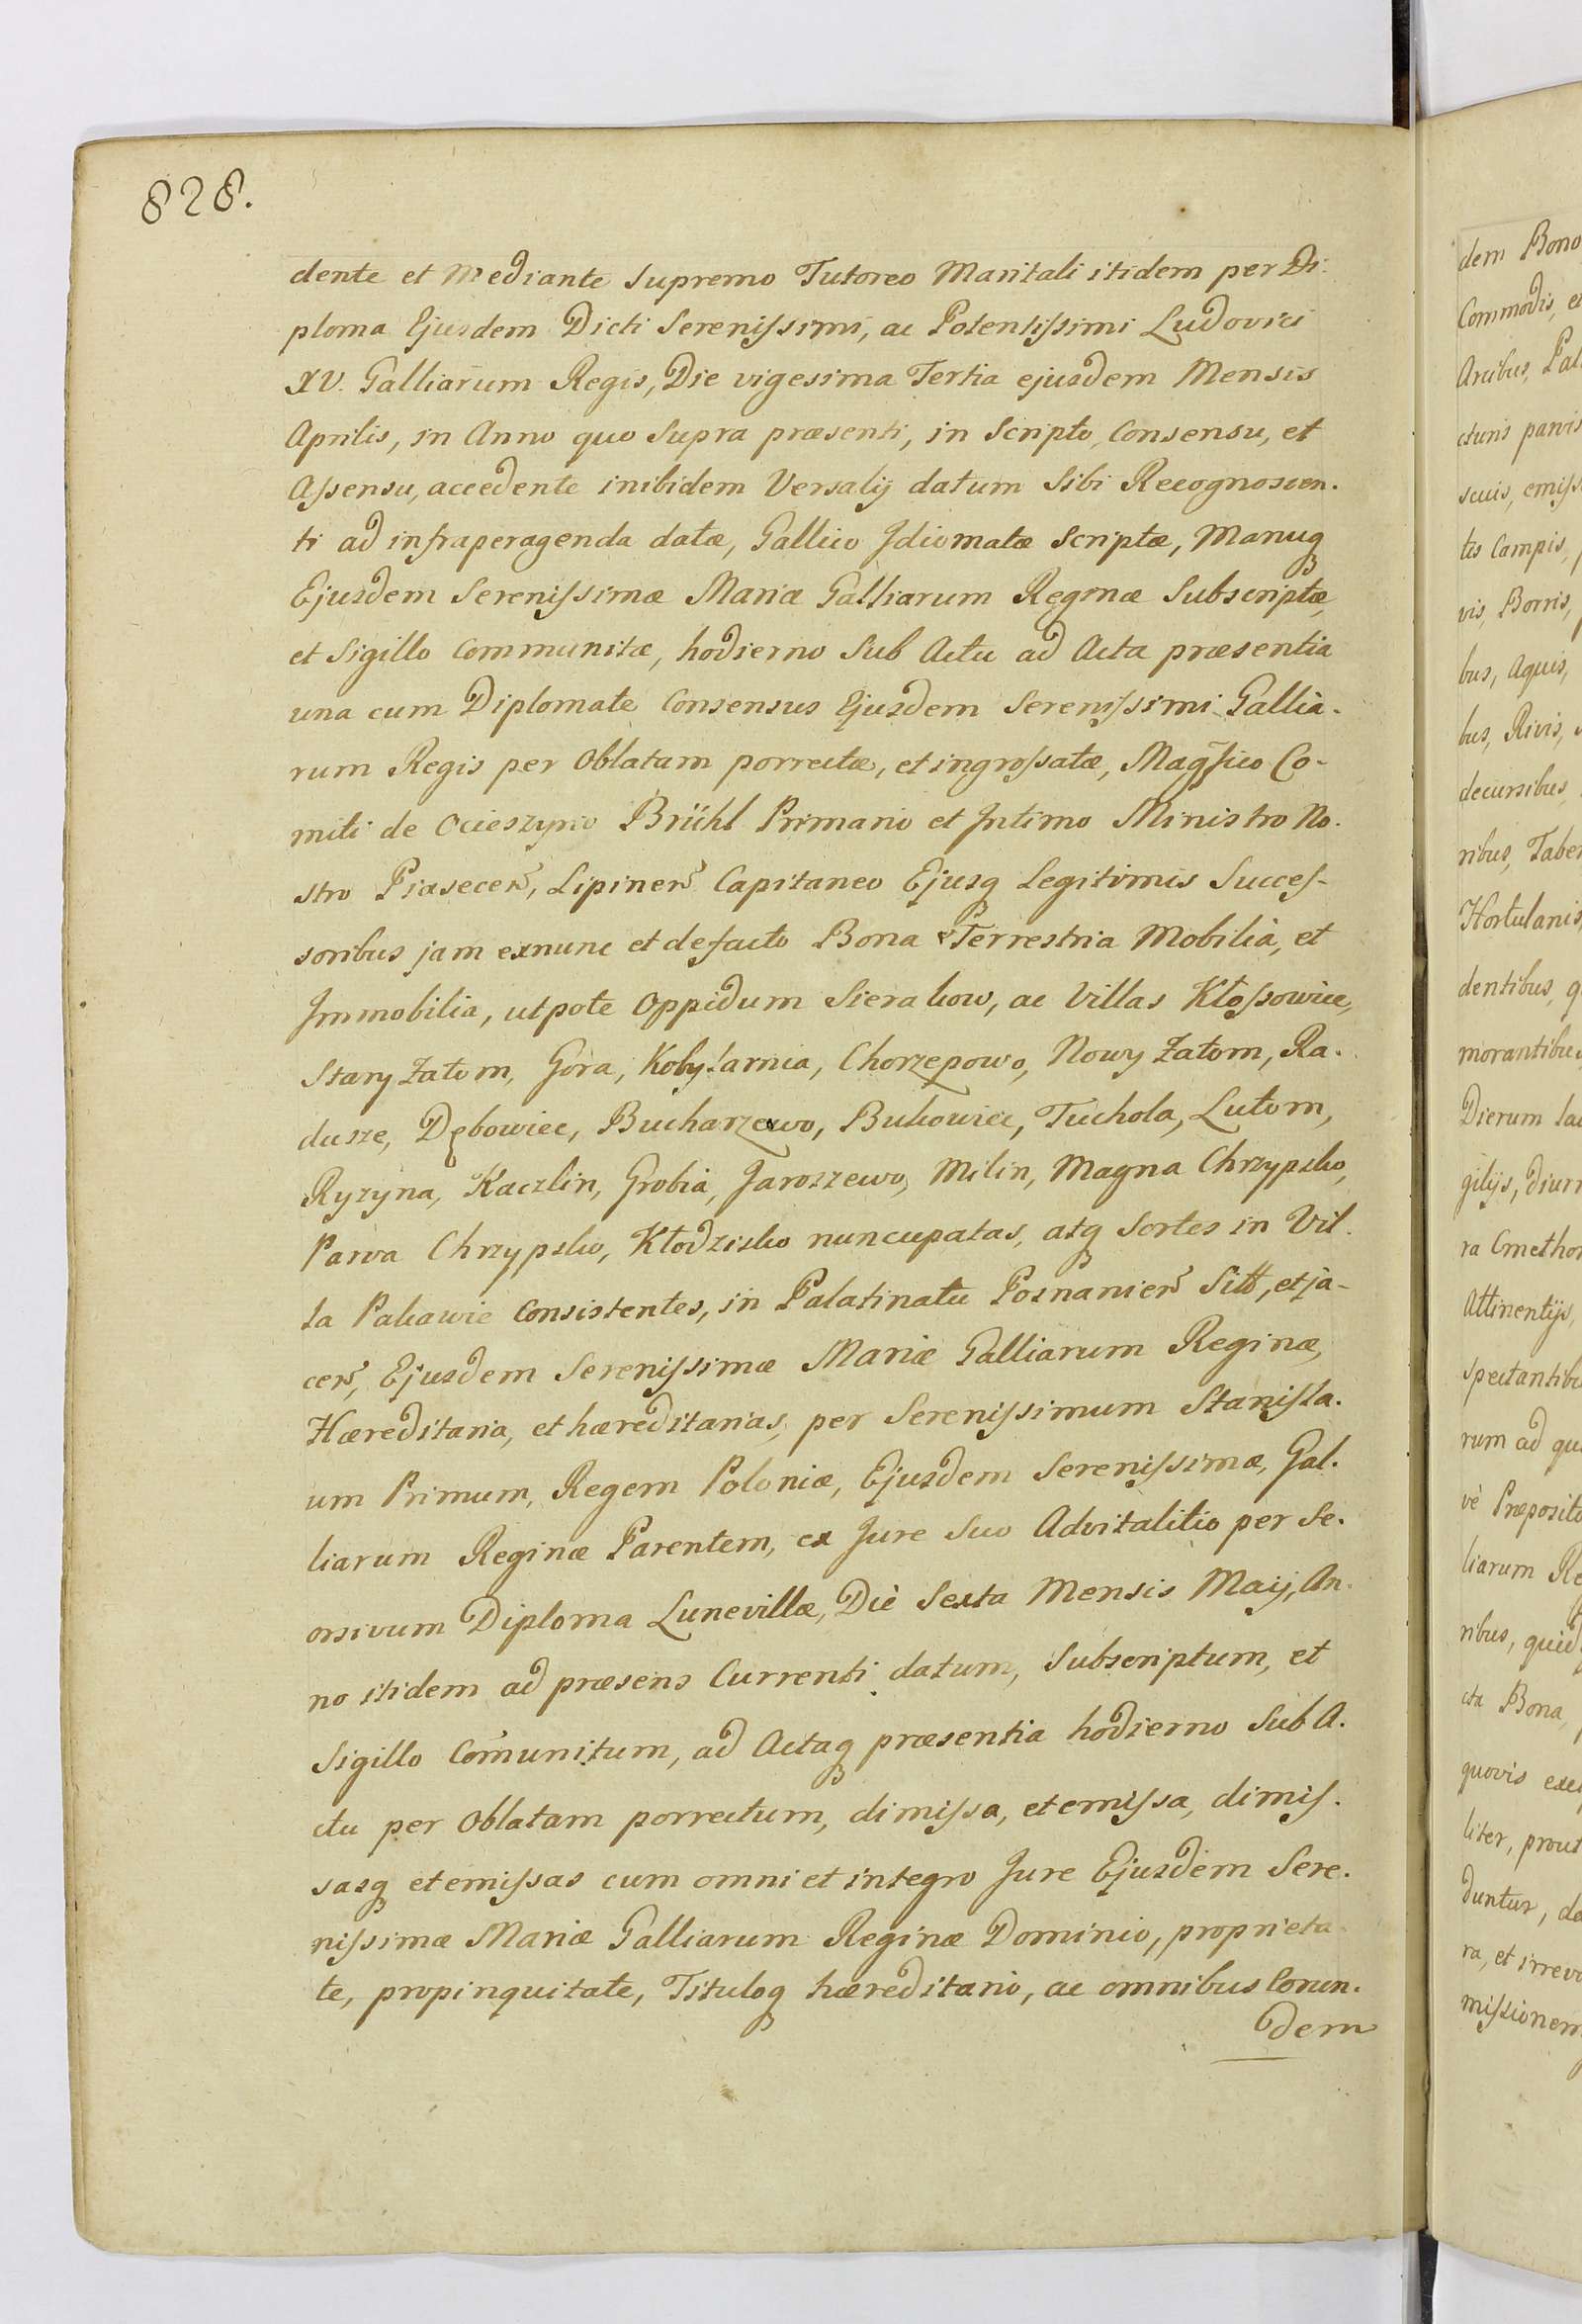 828.
dente et Mediante Supremo Tutoreo Maritali itidem per Di.
ploma Ejusdem Dicti Serenissimi, ac Potentissimi Ludovici
XV. Galliarum Regis, Die vigesima Tertia ejusdem Mensis
Aprilis, in Anno quo Supra præsenti, in Scripto, Consensu, et
Assensu, accedente inibidem Versalij datum Sibi Recognoscen.
ti ad infraperagenda datæ, Gallico Idiomatæ Scriptæ, Manuq
Ejusdem Serenissimæ Mariæ Galliarum Reginæ Subscriptæ,
et Sigillo Communitæ, hodierno Sub Actu ad Acta præsentia
una cum Diplomate Consensus Ejusdem Serenissimi Gallia.
rum Regis per Oblatam porrectæ, et ingrossatæ, Magfico Co-
miti de Ocieszyno Brühl Primario et Intimo Ministro No.
stro Piasecen, Lipinen Capitaneo Ejusq Legitimis Succes-
soribus jam exnunc et defacto Bona Terrestria Mobilia, et
Immobilia, utpote Oppidum Sierakow, ac Villas Kłossowice,
Stary Zatom, Góra, Kobylarnia, Chorzepowo, Nowy Zatom, Ra.
dusze, Dębowiec, Bucharzewo, Bukowiec, Tuchola, Lutom,
Ryzyna, Kaczlin, Grobia, Jaroszewo, Milin, Magna Chrzypsko,
Parva Chrzypsko, Kłodzisko nuncupatas, atq Sortes in Vil.
la Pakawie Consistentes, in Palatinatu Posnanien Sitt, et ja-
cen, Ejusdem Serenissimæ Mariæ Galliarum Reginæ,
Hæreditaria, et hæreditarias, per Serenissimum Stanisla.
um Primum, Regem Poloniæ, Ejusdem Serenissimæ, Gal.
liarum Reginæ Parentem, ex Jure Suo Advitalitio per Se.
orsivum Diploma Lunevillæ, Die Sexta Mensis Maij, An.
no itidem ad præsens Currenti datum, Subscriptum, et
Sigillo Comunitum, ad Actaq præsentia hodierno Sub A.
ctu per Oblatam porrectum, dimissa, et emissa, dimis.
sasq et emissas cum omni et integro Jure Ejusdem Sere.
nissimæ Mariæ Galliarum Reginæ Dominio, proprieta
te, propinquitate, Tituloq hæreditario, ac omnibus Eorun.
dem
dem Bono
Commodis, et
Arcibus, Pal
cturis parvis
scuis, emiss
tis Campis,
vis, Borris,
bus, Aquis,
bus, Rivis,
decursibus
ribus, Taber
Hortulanis,
dentibus, q
morantibus
Dierum la
gilijs, diurn
ra Cmethon
Attinentijs,
spectantibu
rum ad qu
vè Præposito
liarum Re
ribus, quid
cta Bona,
quovis exe
liter, prout
duntur, de
ra, et irrevo
missionem